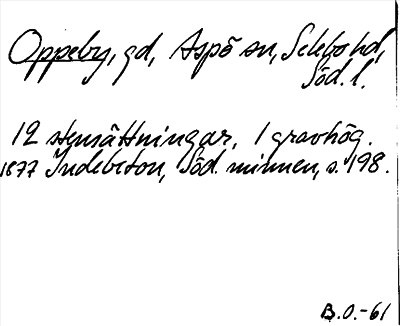 Oppeby, gd, Aspö sn, Selebo hd,
Söd. l.
12 stensättningar, 1 gravhög.
1877 Indebetou, Söd. minnen, s. 198.
B.O.-61